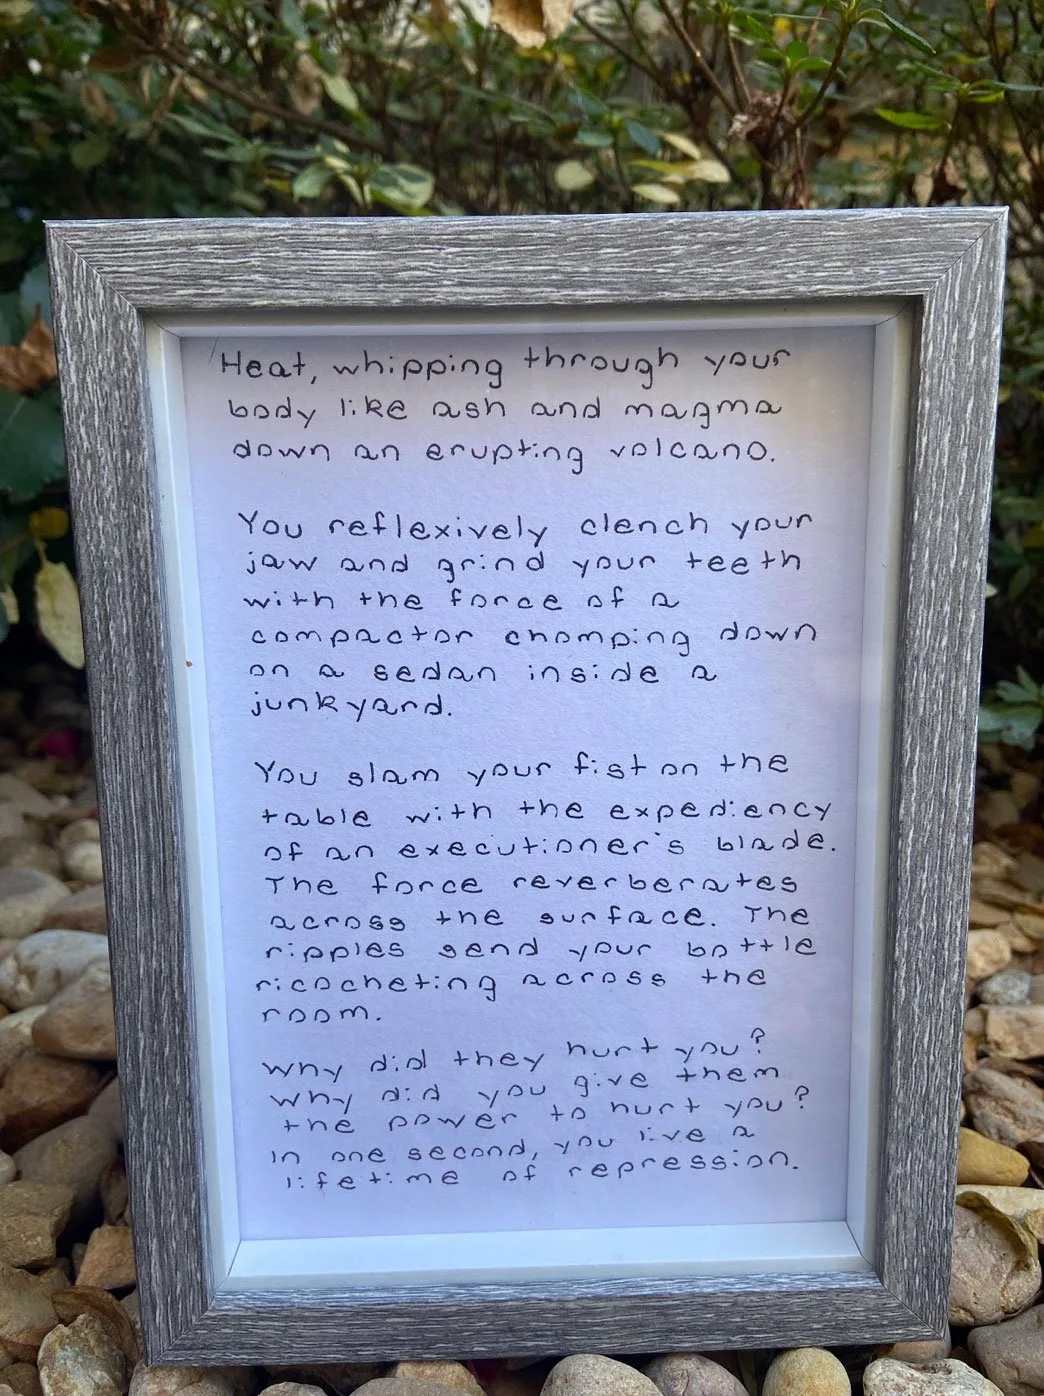 Heat, whipping through your
body like ash and magma
down an erupting volcano.
You reflexively clench your
jaw and grind your teeth
with the force of a
compactor chomping down
on a sedan inside a
junkyard.
You slam your fist on the
table with the expediency
of an executioner's blade.
The force reverberates
across the surface. The
ripples send your bottle
ricocheting across the
room.
Why did they hurt you?
Why did you give them
the power to hurt you?
In one second, you live a
lifetime of repression.